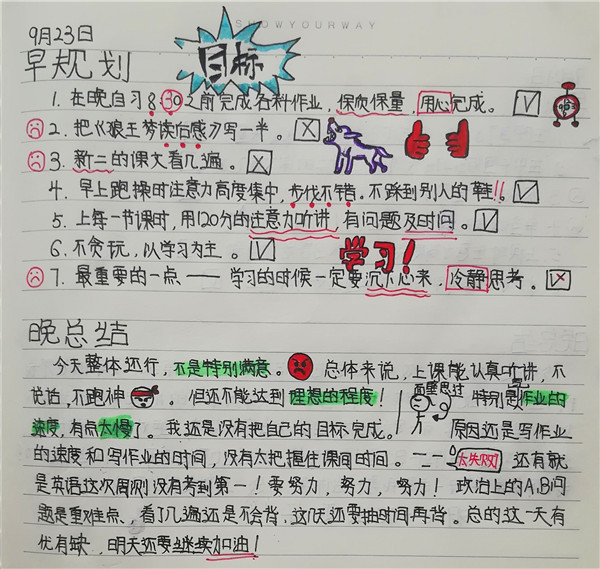 SHOWYOURWAY
9月23日
目标
早规划
1. 在晚自习8:30之前完成各科作业，保质保量，用心完成。
2. 把《狼王梦读后感》写一半。
3. 新二的课文看几遍。
4. 早上跑操时注意力高度集中，步伐不错，不踩到别人的鞋!!
5. 上每一节课时，用120分的注意力听讲，有问题及时问。
6. 不贪玩，以学习为主。
学习！
7. 最重要的一点——学习的时候一定要沉下心来，冷静思考。
晚总结
今天整体还行，不是特别满意。总体来说，上课能认真听讲，不
说话，不跑神。但还不能达到理想的程度！面壁思过 特别是作业的
速度，有点太慢了。我还是没有把自己的目标完成。原因还是写作业
的速度和写作业的时间，没有太把握住课间时间。太失败 还有就
是英语这次周测没有考到第一！要努力，努力，努力！政治上的A.B问
题是重难点、看了几遍还是不会背，这几天还要抽时间再背。总的这一天有
优有缺，明天还要继续加油！